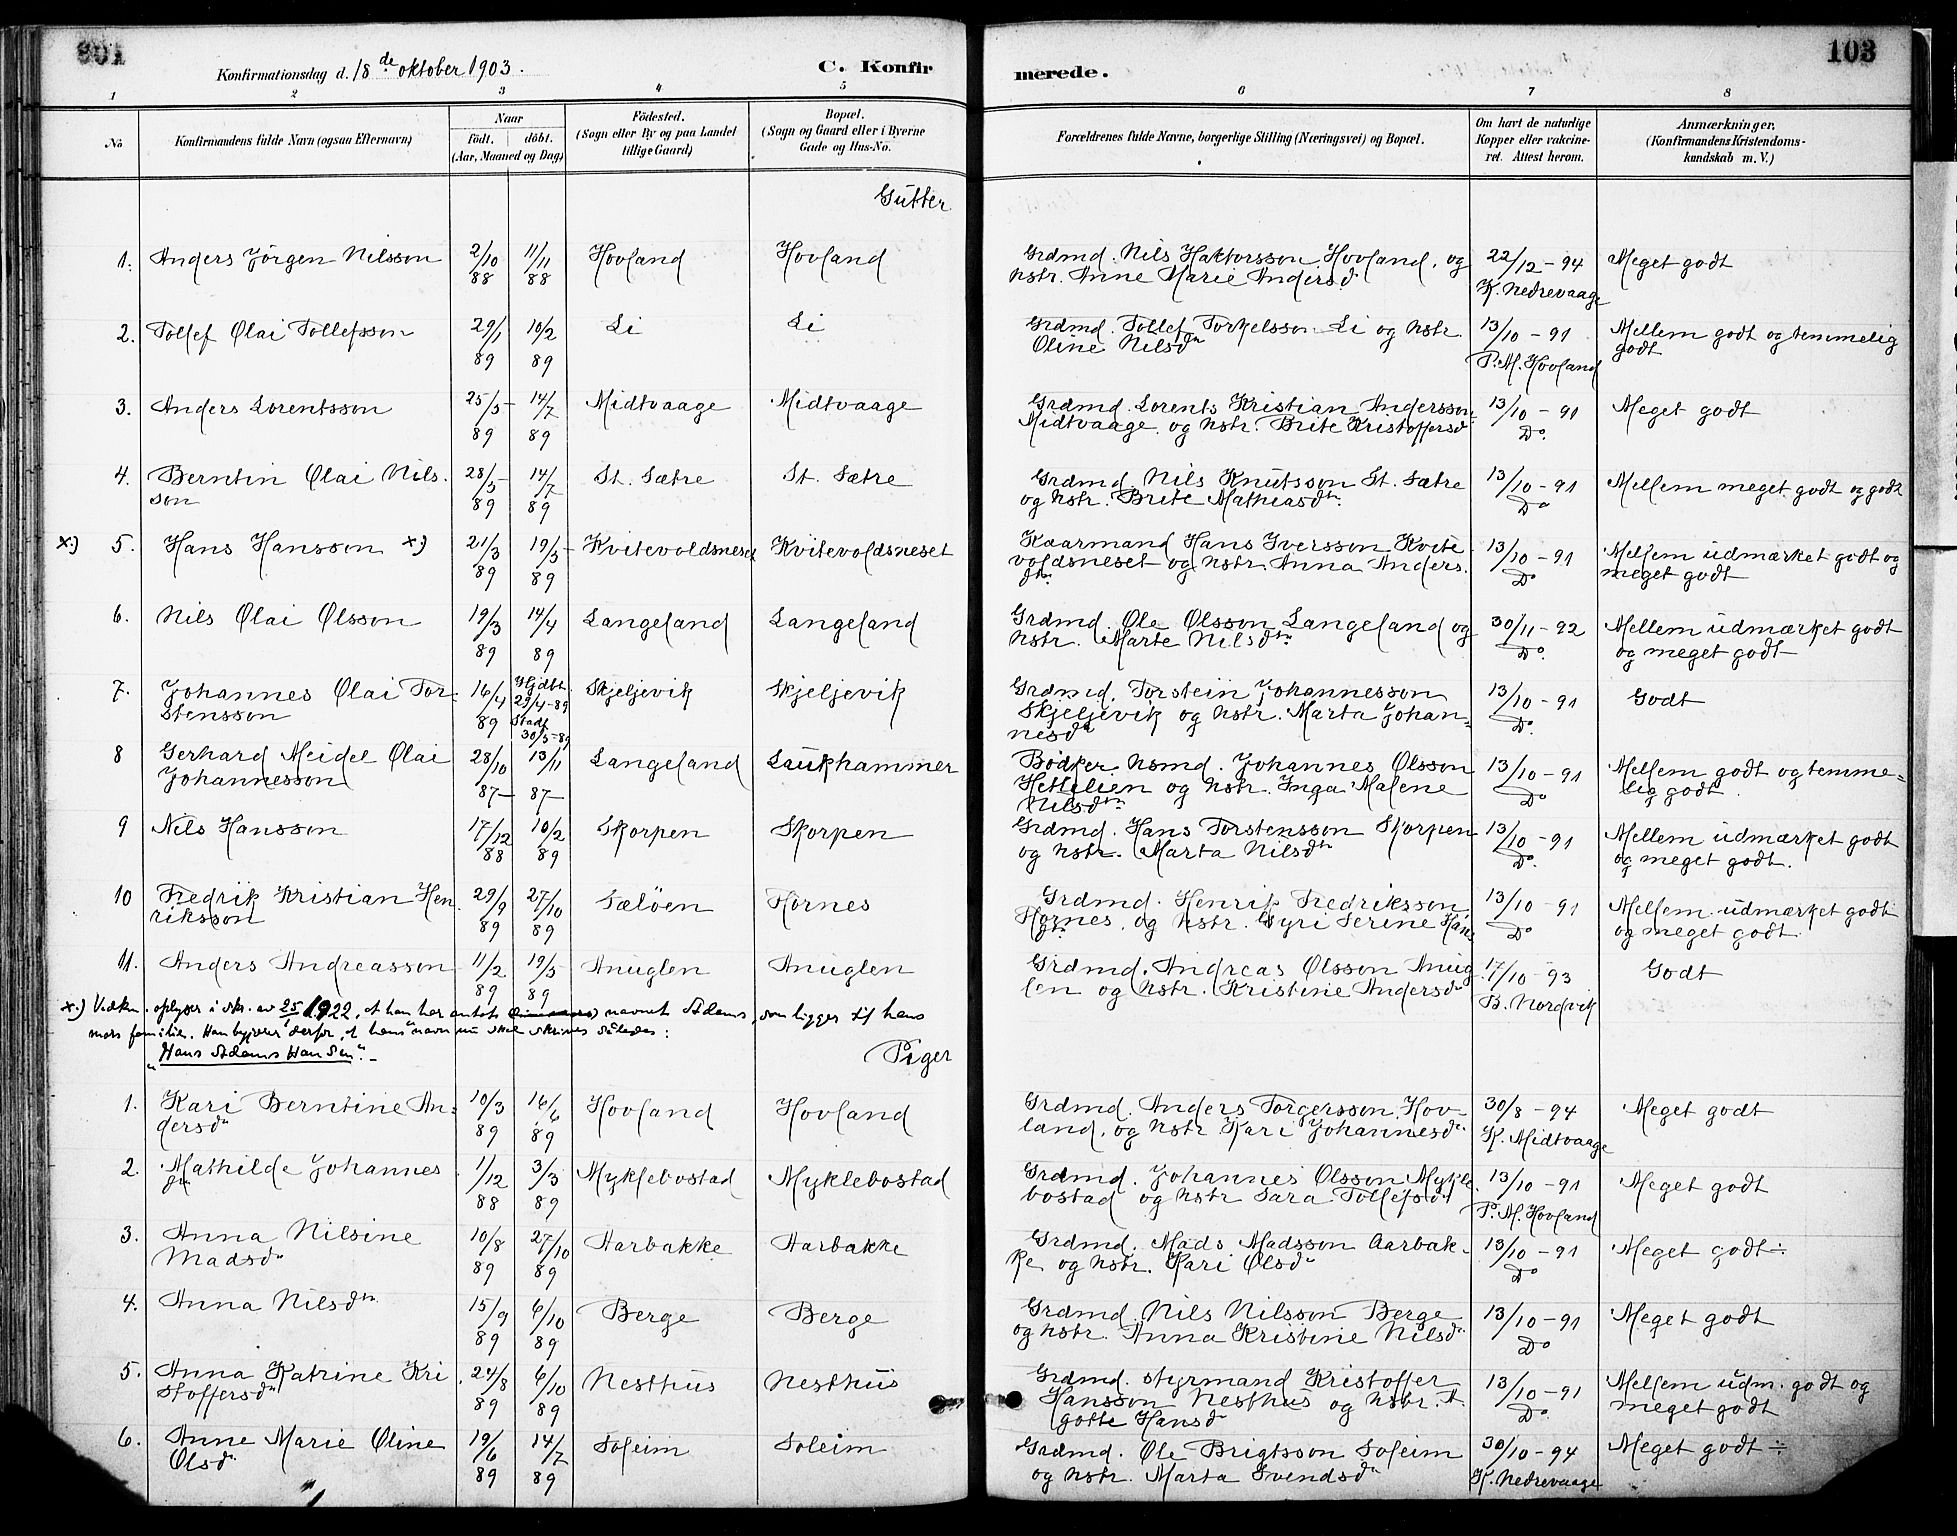 103
Konfirmationsdag d. 18de oktober 1903.
C. Konfirmerede.
103
1 2 3 4 5 6 7 8
No
Konfirmandens fulde Navn (ogsaa Efternavn)
Naar
født. døbt.
(Aar, Maaned og Dag)
Fødested.
(Sogn eller By og paa Landet
tillige Gaard)
Bopæl.
(Sogn og Gaard eller i Byerne
Gade og Hus-No.
Forældrenes fulde Navne, borgerlige Stilling (Næringsvei) og Bopæl.
Om havt de naturlige
Kopper eller vakcine-
ret. Attest herom.
Anmærkninger.
(Konfirmandens Kristendoms-
kundskab m. V.)
Gutter
1. Anders Jørgen Nilsson 2/10 88 11/11 88 Hovland Hovland Grdmd. Nils Haktorsson Hovland, og 22/12 - 94 Meget godt
hstr. Anne Marie Andersd. K. Nedrevaage
2. Tollef Olai Tollefsson 29/1 89 10/2 89 Li Li Grdmd. Tollef Torkelsson Li og hstr. 13/10 - 91 Mellem godt og temmelig
Oline Nilsdtr P. M. Hovland godt
3. Anders Lorentsson 25/5 89 14/7 89 Midtvaage Midtvaage Grdmd. Lorents Kristian Andersson 13/10 - 91 Meget godt
Midtvaage og hstr. Brite Kristoffersd Do.
4. Berntin Olai Nils- 28/5 89 14/7 89 St. Sætre St. Sætre Grdmd. Nils Knutsson St. Sætre 13/10 - 91 Mellem meget godt og godt
son og hstr. Brite Mathiasdtr. Do
x) 5. Hans Hansson x) 21/3 89 19/5 89 Kvitevoldsneset Kvitevoldsneset Kaarmand Hans Iversson Kvite- 13/10 - 91 Mellem udmærket godt og
voldsneset og hstr. Anna Anders- Do meget godt
dtr.
6. Nils Olai Olsson 19/3 89 14/4 89 Langeland Langeland Grdmd. Ole Olsson Langeland og 30/11 - 92 Mellem udmærket godt
hstr. Marte Nilsdtr. Do. og meget godt
7. Johannes Olai Tor- 16/4 89 Hjdbt. 29/4-89 Skjeljevik Skjeljevik Grdmd. Torstein Johannesson 13/10 - 91 Godt
stensson Stadf. 30/5-89 Skjeljevik og hstr. Marta Johan- Do.
nesdtr
8 Gerhard Meidel Olai 28/10 87 13/11 87 Langeland Laukhammer Bødker hsmd. Johannes Olsson 13/10 - 91 Mellem godt og temme-
Johannesson Hettelien og hstr. Inga Malene Do lig godt.
Nilsdtr
9 Nils Hansson 17/12 88 10/2 89 Skorpen Skorpen Grdmd. Hans Torstensson Skorpen 13/10 - 91 Mellem udmærket godt
og hstr. Marta Nilsdtr Do. og meget godt.
10 Fredrik Kristian Hen- 29/9 89 27/10 89 Sæløen Hornes Grdmd. Henrik Fredriksson 13/10 - 91 Mellem udmærket godt
riksson Hornes, og hstr. Gyri Serine Hans- Do og meget godt.
dtr.
11. Anders Andreasson 11/2 89 19/5 89 Anuglen Anuglen Grdmd. Andreas Olsson Anug- 17/10 - 93 Godt
len og hstr. Kristine Andersdtr B. Nordvik
x) Vedkm. oplyser i skr. av 25/1 1922, at han har antat navnet Adams, som ligger til hans
mors familie. Han begjærer derfor, at hans navn nu skal skrives således:
"Hans Adams Hansen". -
Piger
1. Kari Berntine An- 10/3 89 16/6 89 Hovland Hovland Grdmd. Anders Torgersson Hov- 30/8 - 94 Meget godt
dersdtr land, og hstr Kari Johannesdtr K. Midtvaage
2. Mathilde Johannes- 1/12 88 3/3 89 Myklebostad Myklebostad Grdmd. Johannes Olsson Mykle- 13/10 - 91 Meget godt
dtr. bostad og hstr Sara Tollefsdtr P. M. Hovland
3. Anna Nilsine 10/8 89 27/10 89 Aarbakke Aarbakke Grdmd. Mads Madsson Aarbak- 13/10 - 91 Meget godt ÷
Madsdtr ke og hstr. Kari Olsdtr Do
4. Anna Nilsdtr. 15/9 89 6/10 89 Berge Berge Grdmd. Nils Nilsson Berge 13/10 - 91 Meget godt
og hstr. Anna Kristine Nilsdtr Do
5. Anna Katrine Kri- 24/8 89 6/10 89 Nesthus Nesthus Grdmd. styrmand Kristoffer 13/10 - 91 Mellem udm. godt og
stoffersdtr Hansson Nesthus og hstr. A- Do. meget godt
gotte Hansdtr
6. Anne Marie Oline 19/6 89 14/7 89 Soleim Soleim Grdmd. Ole Brigtsson Soleim 30/10 - 94 Meget godt ÷
Olsdtr og hstr. Marta Svendsdtr K. Nedrevaage